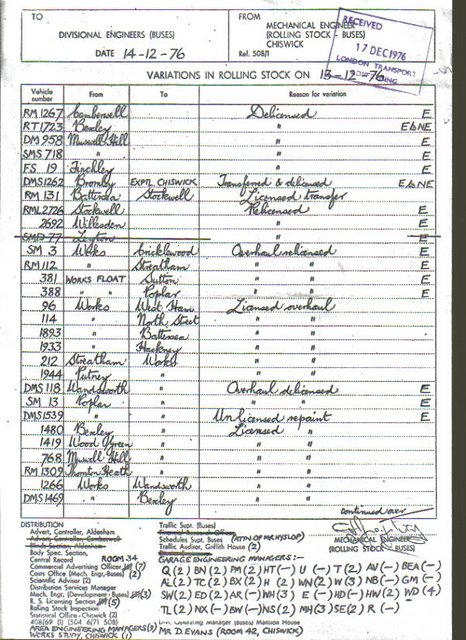 TO
DIVISIONAL ENGINEERS (BUSES)
DATE 14-12-76
FROM
MECHANICAL ENGINEER
(ROLLING STOCK - BUSES)
CHISWICK
Ref. 508/1
RECEIVED
17 DEC 1976
LONDON TRANSPORT
VARIATIONS IN ROLLING STOCK ON 13-12-76
Vehicle number From To Reason for variation
RM 1267 Camberwell Delicensed E
RT 1723 Bexley " E & NE
DM 958 Muswell Hill " E
SMS 718 " " E
FS 19 Finchley " E
DMS 1262 Bromley EXPTL CHISWICK Transferred & delicensed E & NE
RM 131 Battersea Stockwell Licensed transfer
RML 2726 Stockwell Relicensed E
2692 Willesden " E
SMS 77 Leyton " E
SM 3 Works Cricklewood Overhaul relicensed E
RM 112 " Streatham " " E
381 WORKS FLOAT Sutton " " E
388 " Poplar " " E
96 Works West Ham Licensed overhaul
114 " North Street " "
1893 " Battersea " "
1933 " Hackney " "
212 Streatham Works " "
1944 Putney " " "
DMS 118 Wandsworth " Overhaul delicensed E
SM 13 Poplar " " " E
DMS 1539 " Unlicensed repaint E
1480 Bexley " Licensed "
1419 Wood Green " " "
768 Muswell Hill " " "
RM 1309 Thornton Heath " " "
1266 Works Wandsworth " "
DMS 1469 " Bexley " "
continued over
DISTRIBUTION
Advert, Controller, Aldenham
Body Spec. Section,
Central Record ROOM 34
Commercial Advertising Officer (7)
Costs Office (Mech. Engr.-Buses) (2)
Scientific Adviser (2)
Distribution Services Manager
Mech. Engr. (Development-Buses) (3)
R. S. Licensing Section (5)
Rolling Stock Inspection
Statistical Officer, Chiswick (2)
408/69 (1) 504 (6/71 508)
AREA ENGINEERING MANAGERS (9)
WORKS STUDY, CHISWICK (1)
Traffic Supt. (Buses)
Schedules Supt. Buses (ATTN OF MR HYSLOP)
Traffic Auditor, Griffith House (2)
MECHANICAL ENGINEER
(ROLLING STOCK - BUSES)
GARAGE ENGINEERING MANAGERS:-
Operating Manager (Buses) Mansion House
MR D. EVANS (ROOM 42, CHISWICK)